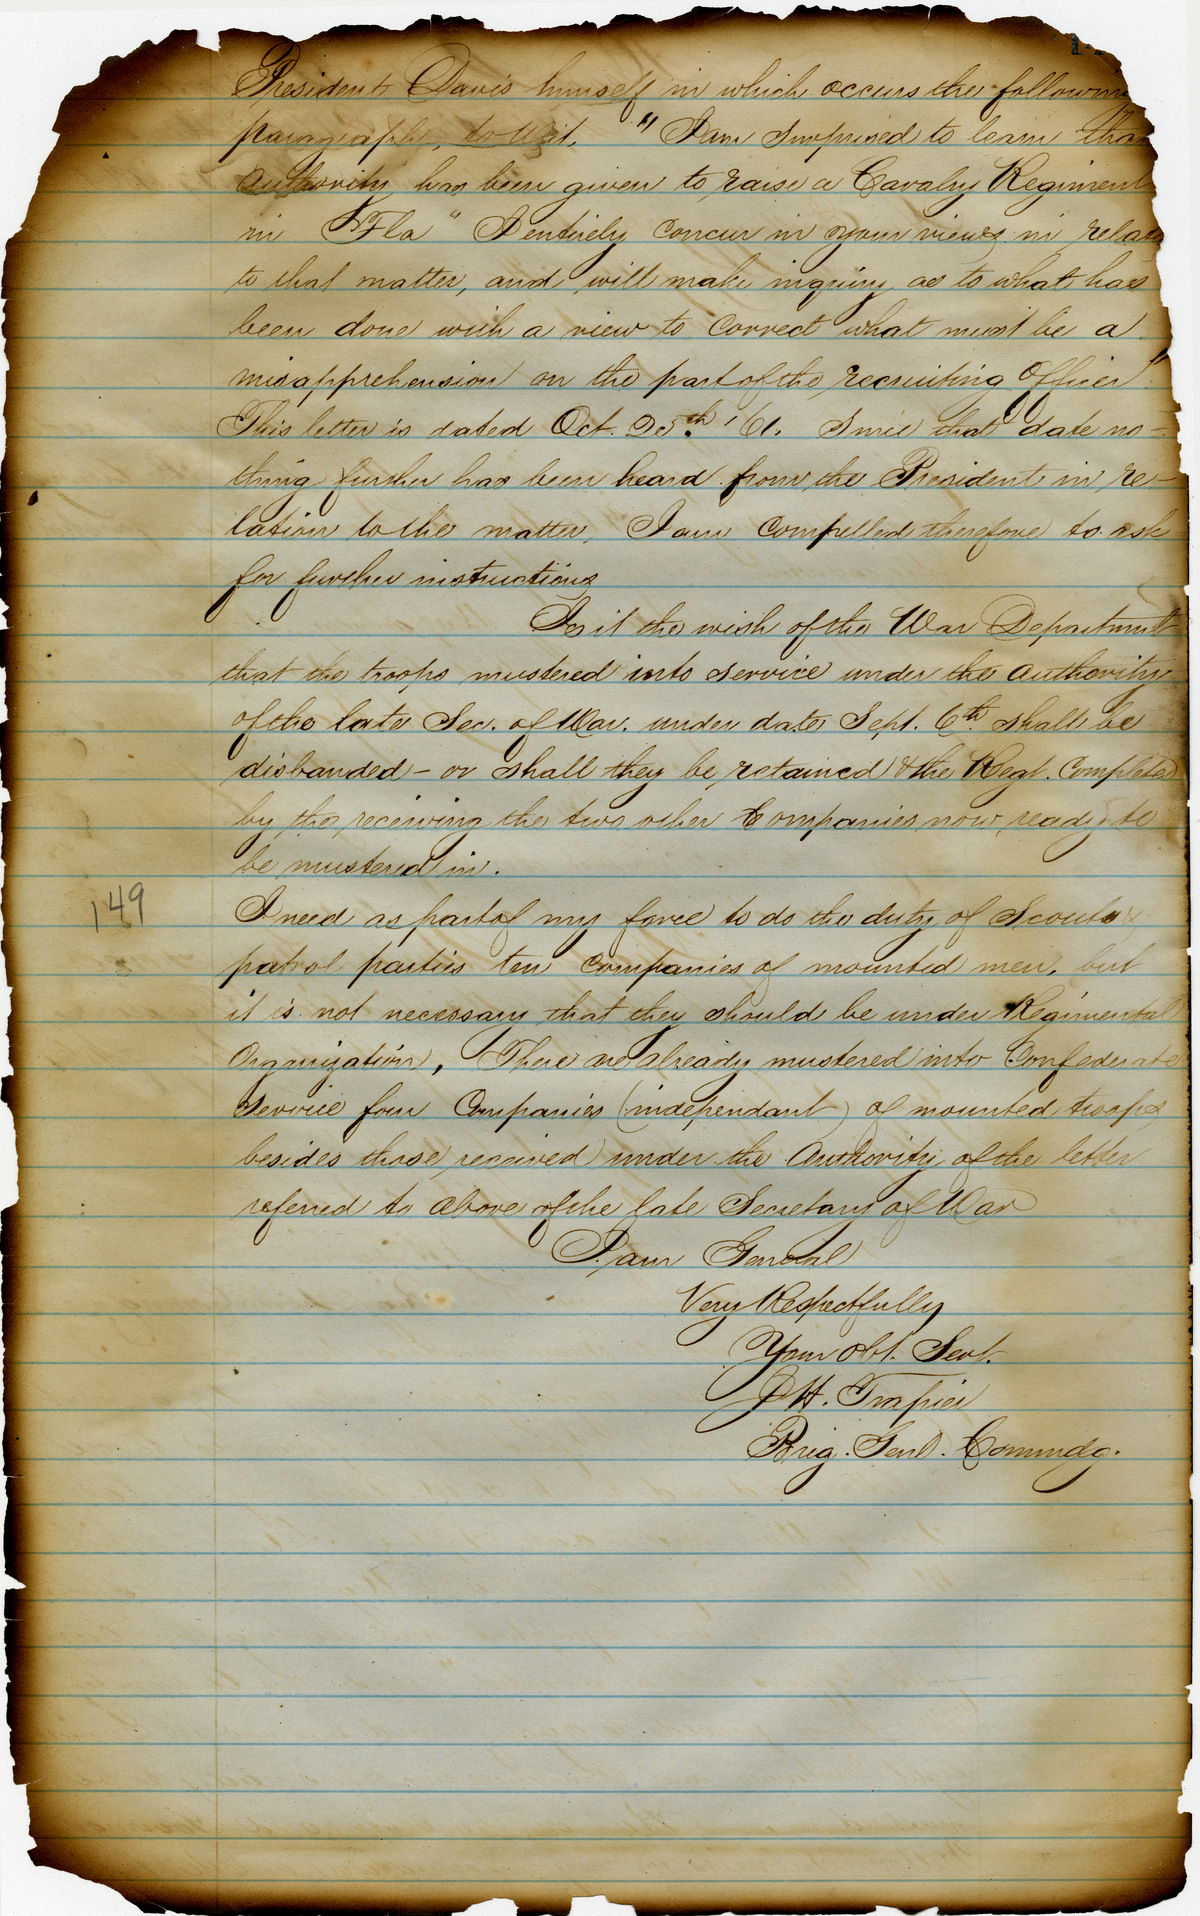 President Davis himself in which occurs the following
paragraph, to wit. "I am surprised to learn that
authority has been given to raise a Cavalry Regiment
in Fla" I entirely concur in your views in relat
to that matter, and will make inquiry as to what has
been done with a view to correct what must be a
misapprehension on the part of the recruiting officer"
This letter is dated Oct. 25th '61. Since that date no-
thing further has been heard from the President in re-
lation to the matter, I am compelled therefore to ask
for further instructions
Is it the wish of the War Department
that the troops mustered into service under the authority
of the late Sec. of War. under date Sept. 6th shall be
disbanded - or shall they be retained & the Regt. completed
by the receiving the two other Companies now ready to
be mustered in.
149
I need as part of my force to do the duty of Scouts &
patrol parties ten companies of mounted men, but
it is not necessary that they should be under Regimental
Organization, There are already mustered into Confederate
Service four Companies (independant) of mounted troops
besides those received under the authority of the letter
referred to above of the late Secretary of War
I am General
Very Respectfully
Your Obt. Servt.
J H. Trapier
Brig. Genl. Commdg.